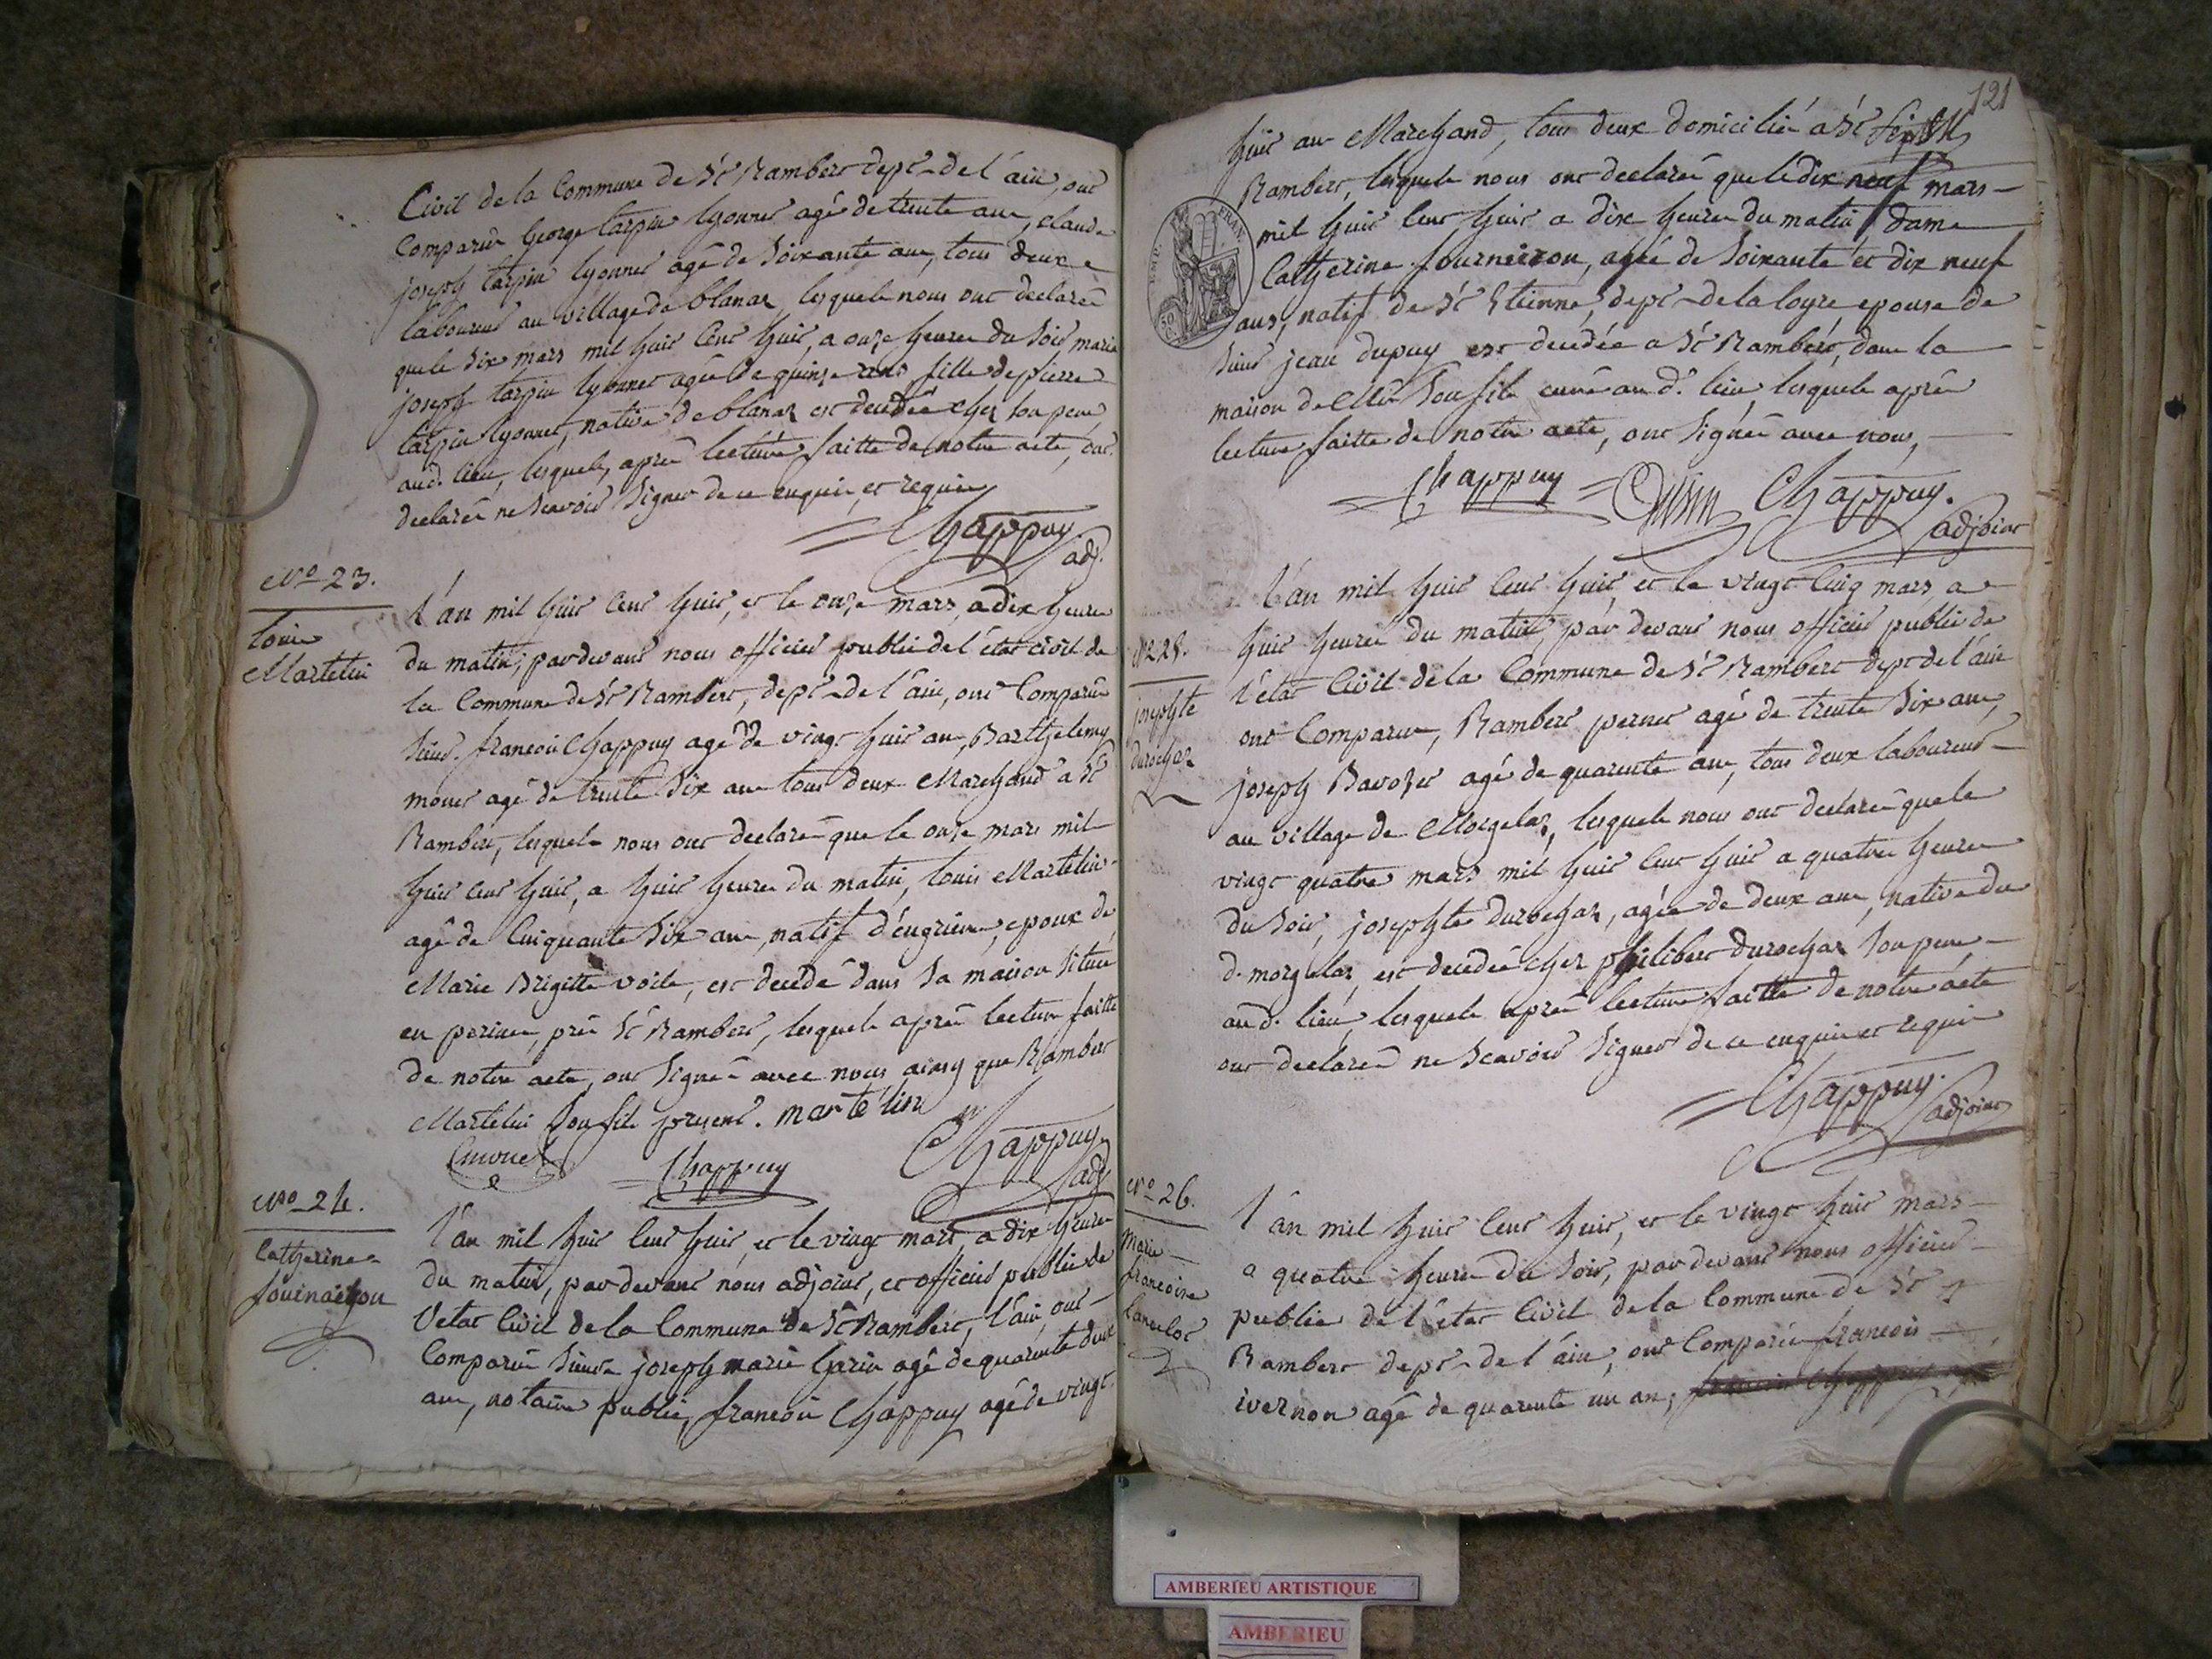 Civil de la Commune de St Rambert dept de l'ain, ont
Comparus George tarpin lyonnet agé de trente ans, claude
joseph tarpin lyonnet agé de soixante ans, tous deux
laboureur au village de blanaz, lesquels nous ont declarés
que le dix mars mil huit cent huit, a onze heures du soir marie
joseph tarpin lyonnet agée de quinze ans, fille de pierre
tarpin lyonnet, native de blanaz est decedée chez son pere
aud. lieu, lesquels, après lecture faitte de notre acte, ont
declarés ne scavoir signer de ce enquis et requis
Chappuy
adj.
No 23.
Louis
Martelin
L'an mil huit cent huit, et le onze mars, a dix heures
du matin, pardevant nous officier public de l'état civil de
la Commune de St Rambert, dept de l'ain, ont Comparus
Sieurs francois Chappuy agé de vingt huit ans, Barthelemy
monet agé de trente six ans tous deux Marchand a St
Rambert, lesquels nous ont declarés que le onze mars mil
huit cent huit, a huit heures du matin, Louis Martelin
agé de Cinquante six ans, natif d'eugrieux, epoux de
Marie Brigitte voile, est decedé dans sa maison située
en perines, près St Rambert, lesquels après lecture faitte
de notre acte, ont signés avec nous ainsy que Rambert
Martelin son fils present. martélin
Chappuy
Chappuy
adj
No 24.
Catherine
fournairon
L'an mil huit cent huit, et le vingt mars, a dix heures
du matin, pardevant nous adjoint, et officier public de
l'etat Civil de la Commune de St Rambert, l'ain, ont
Comparus Sieurs joseph marie agé de quarente deux
ans, notaire public, francois Chappuy agé de vingt
121
huit ans Marchand, tous deux domiciliés a St
Rambert, lesquels nous ont declarés que le dix neuf mars
mil huit cent huit a dix heures du matin dame
Catherine fourneiron, agée de soixante et dix neuf
ans, natif de St Etienne, dept de la loyre epouse de
sieur jean dupuy est decedée a St Rambert, dans la
maison de Mr son fils curé aud. lieu, lesquels après
lecture faitte de notre acte, ont signés avec nous,
Chappuy Chappuy.
adjoint
No 25.
josephte
durochaz
L'an mil huit cent huit, et le vingt Cinq mars, a
huit heures du matin, par devant nous officier public de
l'état Civil de la Commune de St Rambert dept de l'ain
ont Comparus, Rambert pernet agé de trente six ans,
joseph Bavozet agé de quarente ans, tous deux laboureur
au village de Morgelaz, lesquels nous ont declarés que le
vingt quatre mars mil huit cent huit a quatre heures
du soir, josephte durochaz, agée de deux ans, native du
d. morgelaz, est decedée chez philibert durochaz son pere
aud. lieu, lesquels après lecture faitte de notre acte
ont declarés ne scavoir signer de ce enquis et requis
Chappuy.
adjoint
No 26.
Marie
francoise
Lancelot
L'an mil huit cent huit, et le vingt huit mars
a quatre heures du soir, par devant nous officier
public de l'état Civil de la Commune de St
Rambert dept de l'ain, ont Comparus francois
ivernon agé de quarente un an,
AMBERIEU ARTISTIQUE
AMBERIEU